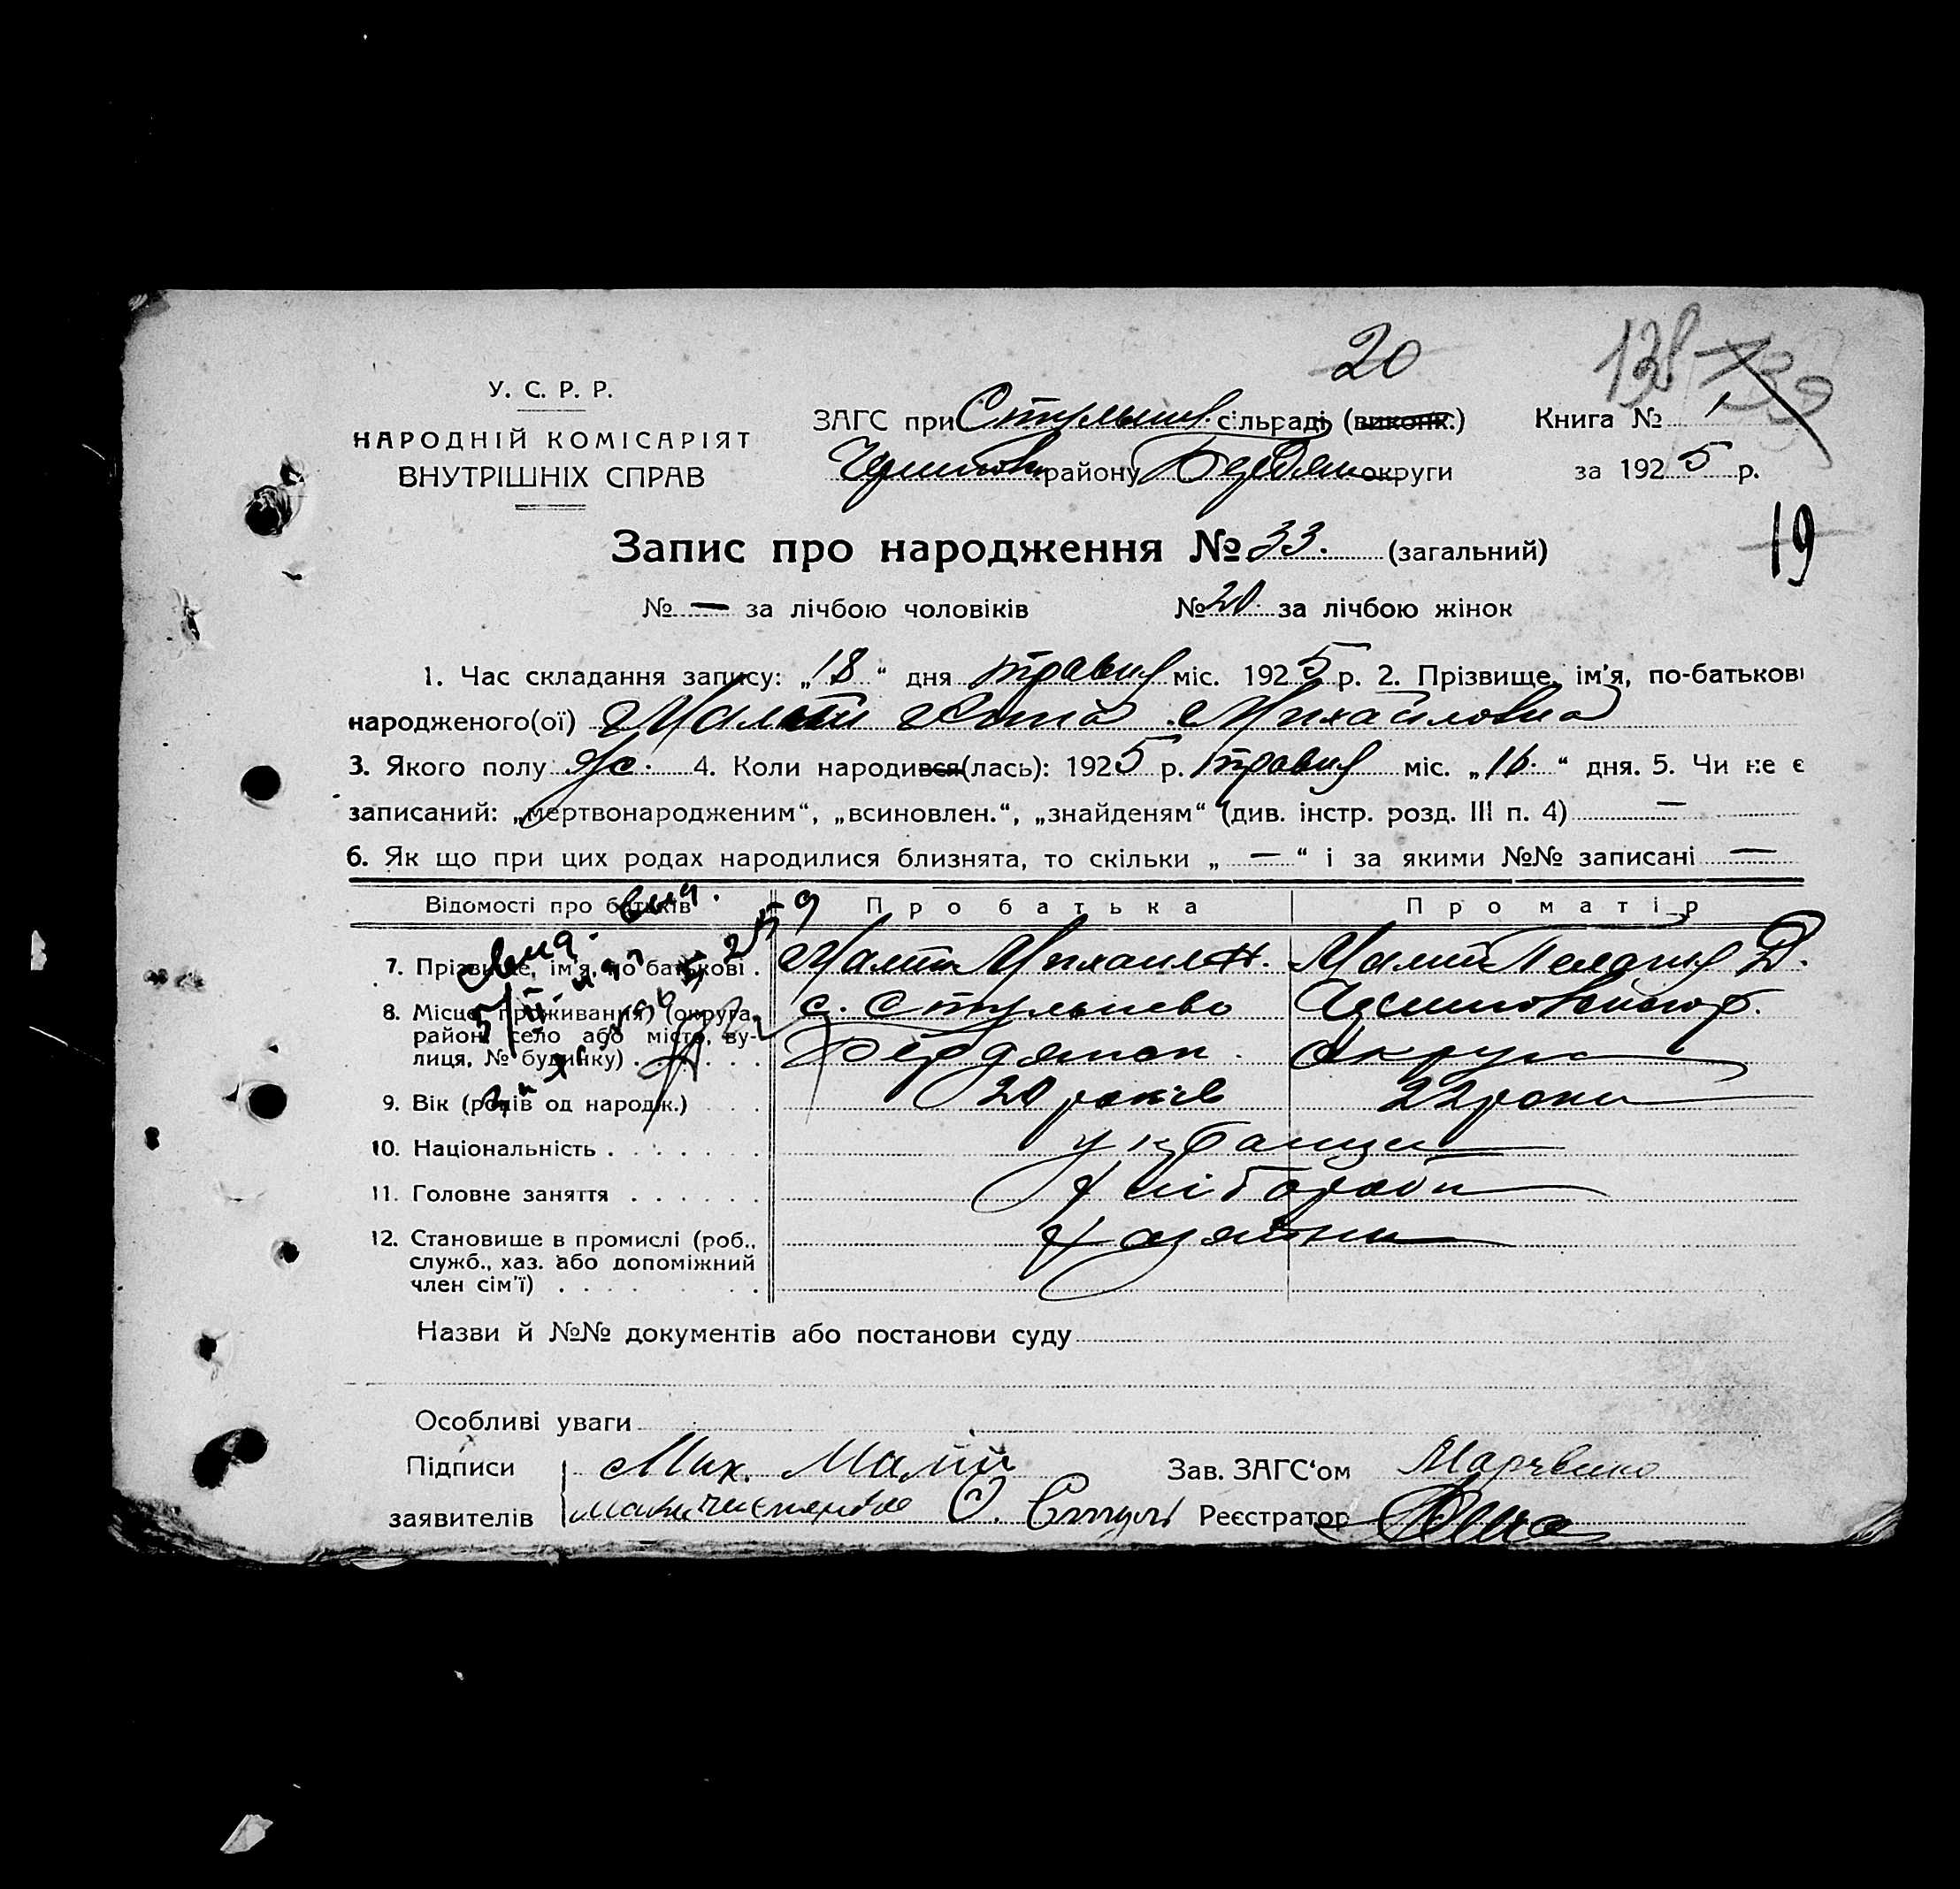 20
138 139
У. С. Р. Р.
НАРОДНІЙ КОМІСАРІЯТ
ВНУТРІШНІХ СПРАВ
ЗАГС при Стульнев. сільраді (виконк.)
району Бердян округи
Книга № 1
за 1925 р.
19
Запис про народження № 33. (загальний)
№ — за лічбою чоловіків № 20. за лічбою жінок
1. Час складання запису: „18“ дня травня міс. 1925 р. 2. Прізвище, ім’я, по-батькові
народженого(ої) Малій Михайловна
3. Якого полу ж. 4. Коли народився(лась): 1925 р. травня міс. „16.“ дня. 5. Чи не є
записаний: „мертвонародженим“, „всиновлен.“, „знайденям“ (див. інстр. розд. III п. 4) —
6. Як що при цих родах народилися близнята, то скільки „ — “ і за якими №№ записані —
Відомості про батьків Про батька Про матір
7. Прізвище, ім’я, по батькові . Малий Михаил Н. Малий Пелагия Д.
8. Місце проживання) (округа, с. Стульнево
район, село або місто, ву-
лиця, № будинку) . . . . . . Бердянск. округи
9. Вік (років од народж.) . . 20 років 22 роки
10. Національність . . . . . . . українци
11. Головне заняття . . . . . . хліборобы
12. Становище в промислі (роб., хазяіни
служб., хаз. або допоміжний
член сім’ї) . . . . . . .
Назви й №№ документів або постанови суду
Особливі уваги
Підписи Мих. Малий Зав. ЗАГС‘ом
заявителів Реєстратор